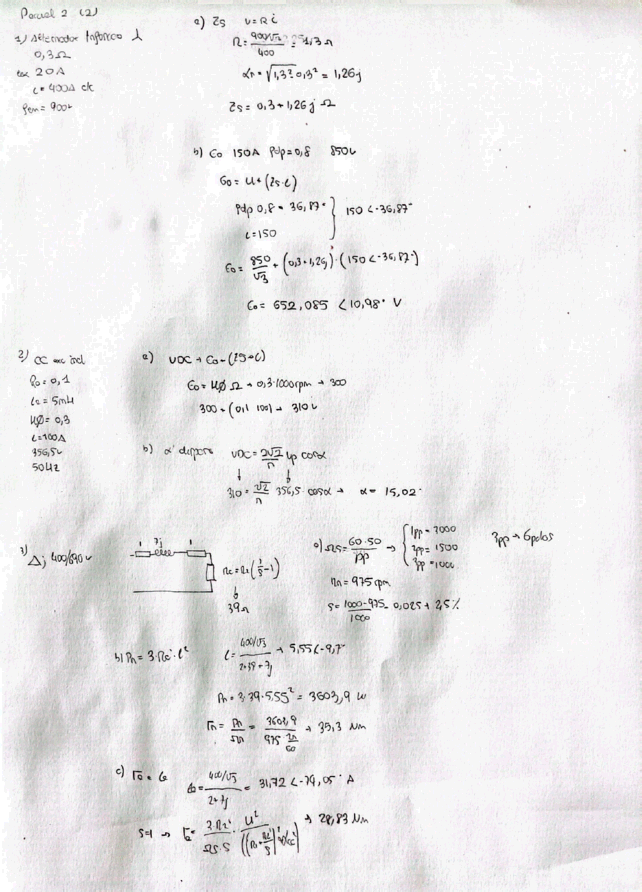 Parcial 2 (2)
1) Alternador trifásico λ
0,3Ω
exc 20A
i = 400A ck
= 900v
a) Zs v=Ri
R = 900/√3 / 400 = 1,3Ω
= √1,3² 0,3² = 1,26j
Zs = 0,3+1,26j Ω
b) Eo 150A Pdp=0,8 850v
Eo = U + (Zs·i)
Pdp 0,8 = 36,87°
i=150
150 <-36,87°
Eo = 850/√3 + (0,3+1,26j)·(150 <-36,87°)
Eo = 652,085 <10,98° V
2) CC exc ind
Ra=0,1
= 5mH
KØ = 0,3
i=100A
356,5v
50Hz
a) VDC → Eo -
Eo = KØ Ω → 0,3·1000rpm → 300
300 + (0,1 100) → 310v
b) α disparo VDC = 2√2/π Up cosα
310 = √2/π 356,5 cosα → α = 15,02°
3) Δj 400/690v
1 7j 1
Rc = R2(1/s -1)
39Ω
a) Ωs = 60·50/pp →
1pp = 3000
2pp = 1500
3pp = 1000
3pp → 6polos
n = 975 rpm
s = 1000-975/1000 = 0,025 → 2,5%
b) Pn = 3·Rc'·i²
i = 400/√3 / 2+39+7j → 5,55<-9,7°
Pn = 3·39·5,55² = 3603,9 W
= 3603,9 / 975 2π/60 → 35,3 Nm
c)
= 400/√3 / 2+7j = 31,72 <-74,05° A
s=1 → → 28,83 Nm